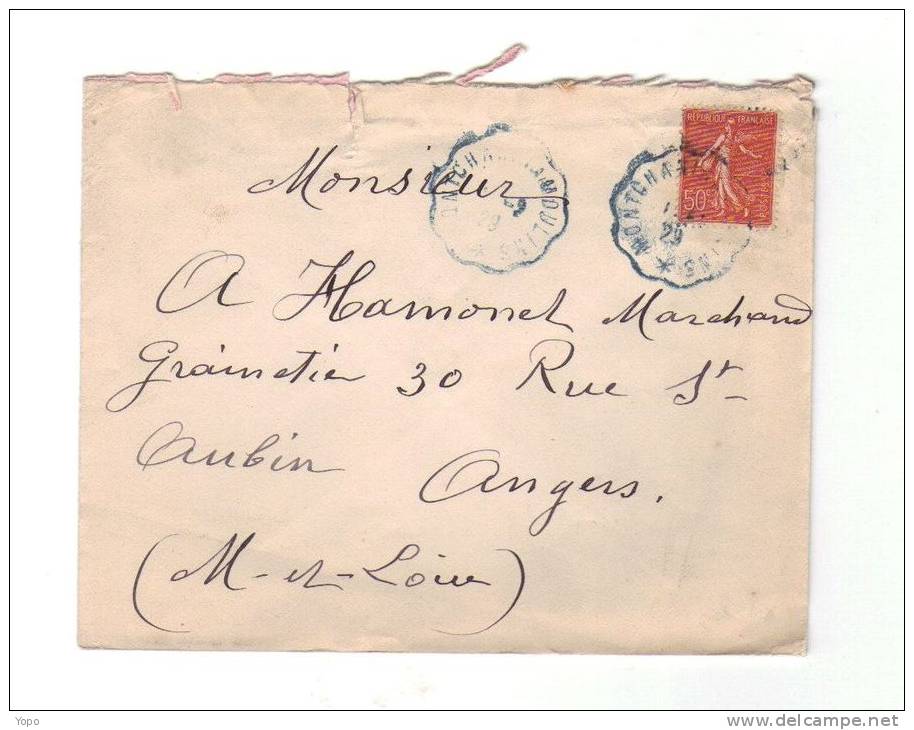 RÉPUBLIQUE FRANÇAISE
50c
POSTES
MONTCHANIN MOULINS
29
MONTCHA INS
29
Monsieur
A Hamonet Marchand
Grainetier 30 Rue St
Aubin Angers.
(M-et-Loire)
Yopo
www.delcampe.net